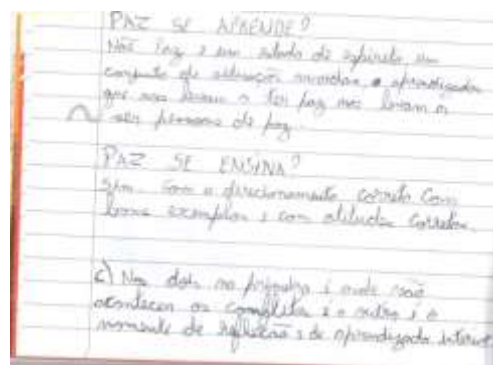 PAZ SE APRENDE?
Não Paz é um estado de espirito um
conjunto de situações vividas, e aprendizados
que nos levam a ter paz nos levam a
ser pessoas de paz.
PAZ SE ENSINA?
Sim. Com o direcionamento correto Com
bons exemplos e com atitudes corretas.
c) Nos dois na é onde são
acontecem os conflitos e o outro é o
momento de reflexão e de aprendizado interno